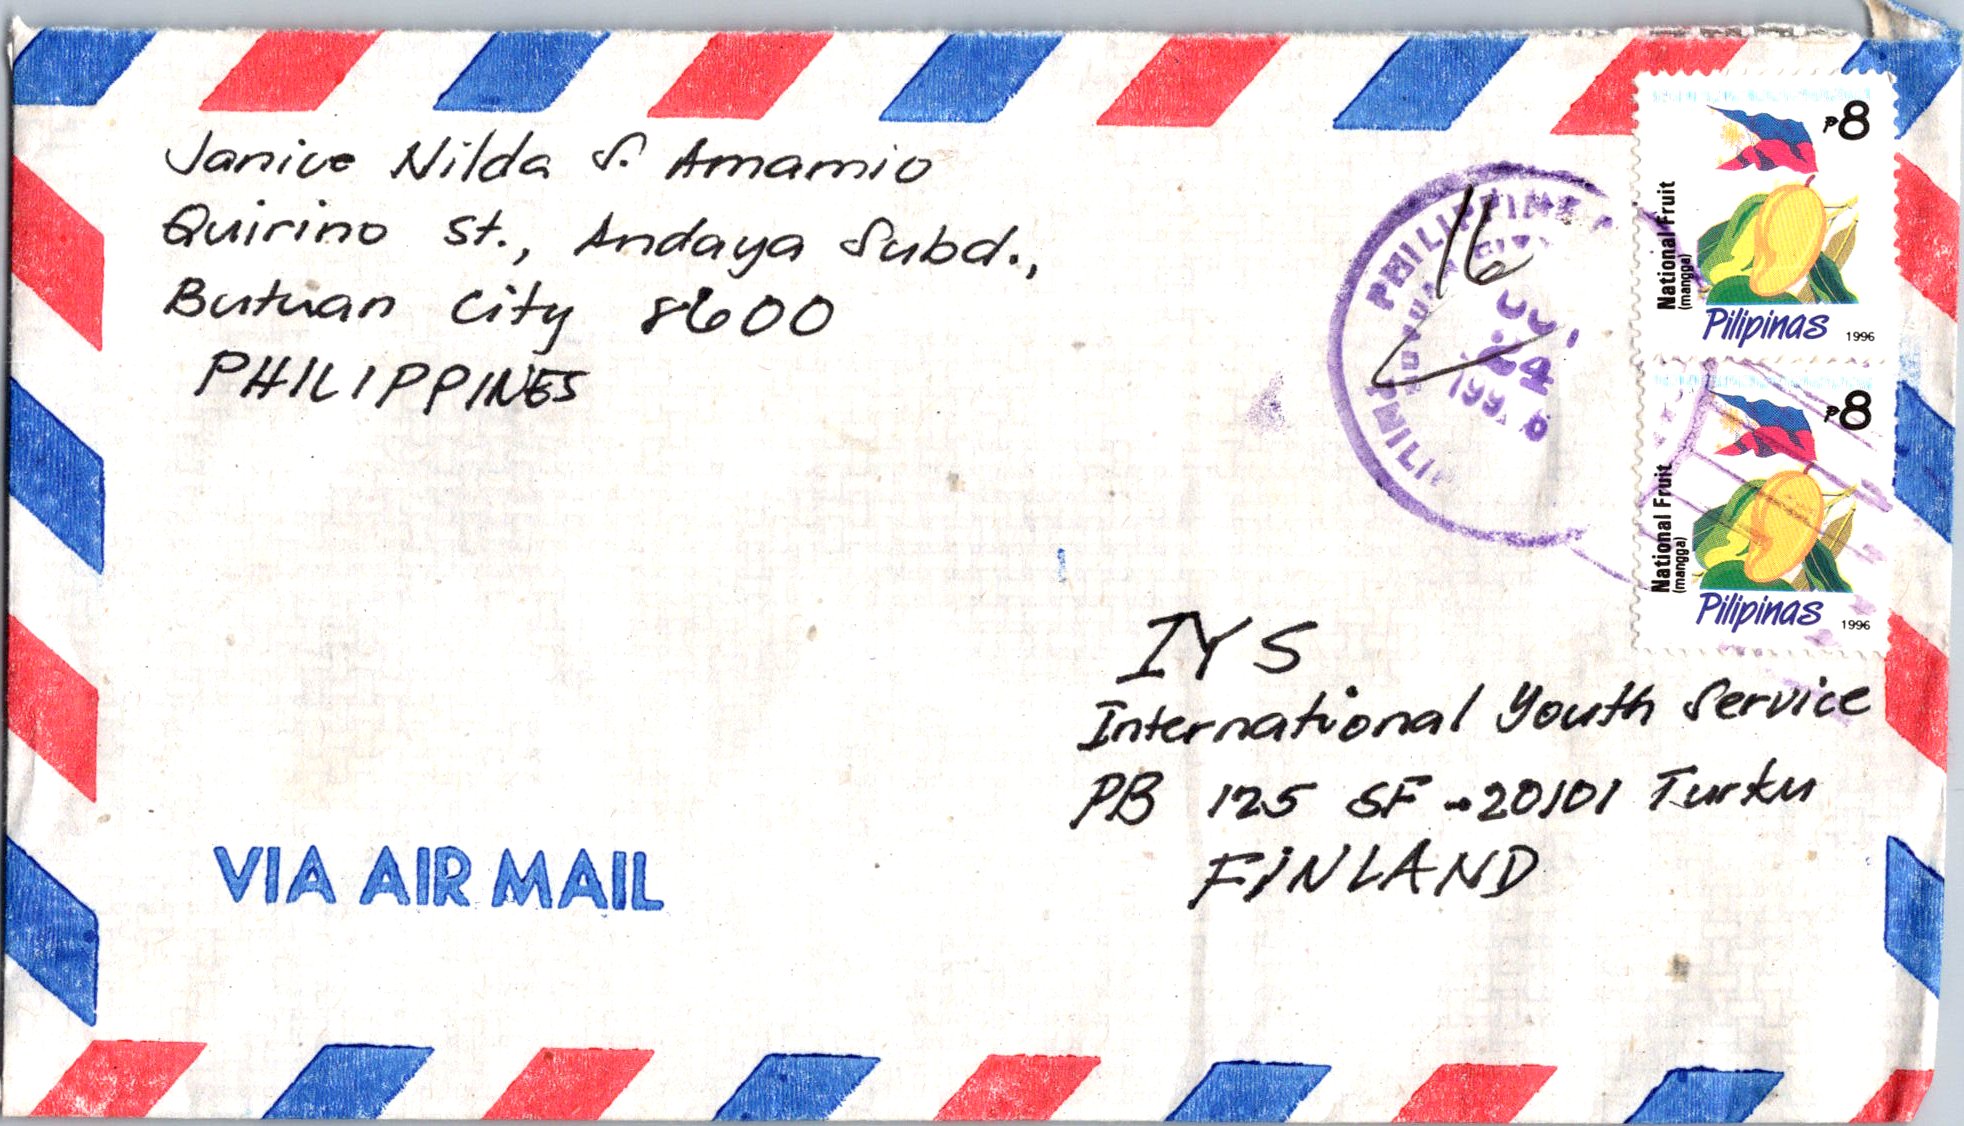 Janice Nilda S. Amamio
Quirino St., Andaya Subd.,
Butuan City 8600
PHILIPPINES
PHILIPPINE
16
OCT
24
1996
₱8
National Fruit
(mangga)
Pilipinas 1996
₱8
National Fruit
(mangga)
Pilipinas 1996
IYS
International Youth Service
PB 125 SF-20101 Turku
FINLAND
VIA AIR MAIL